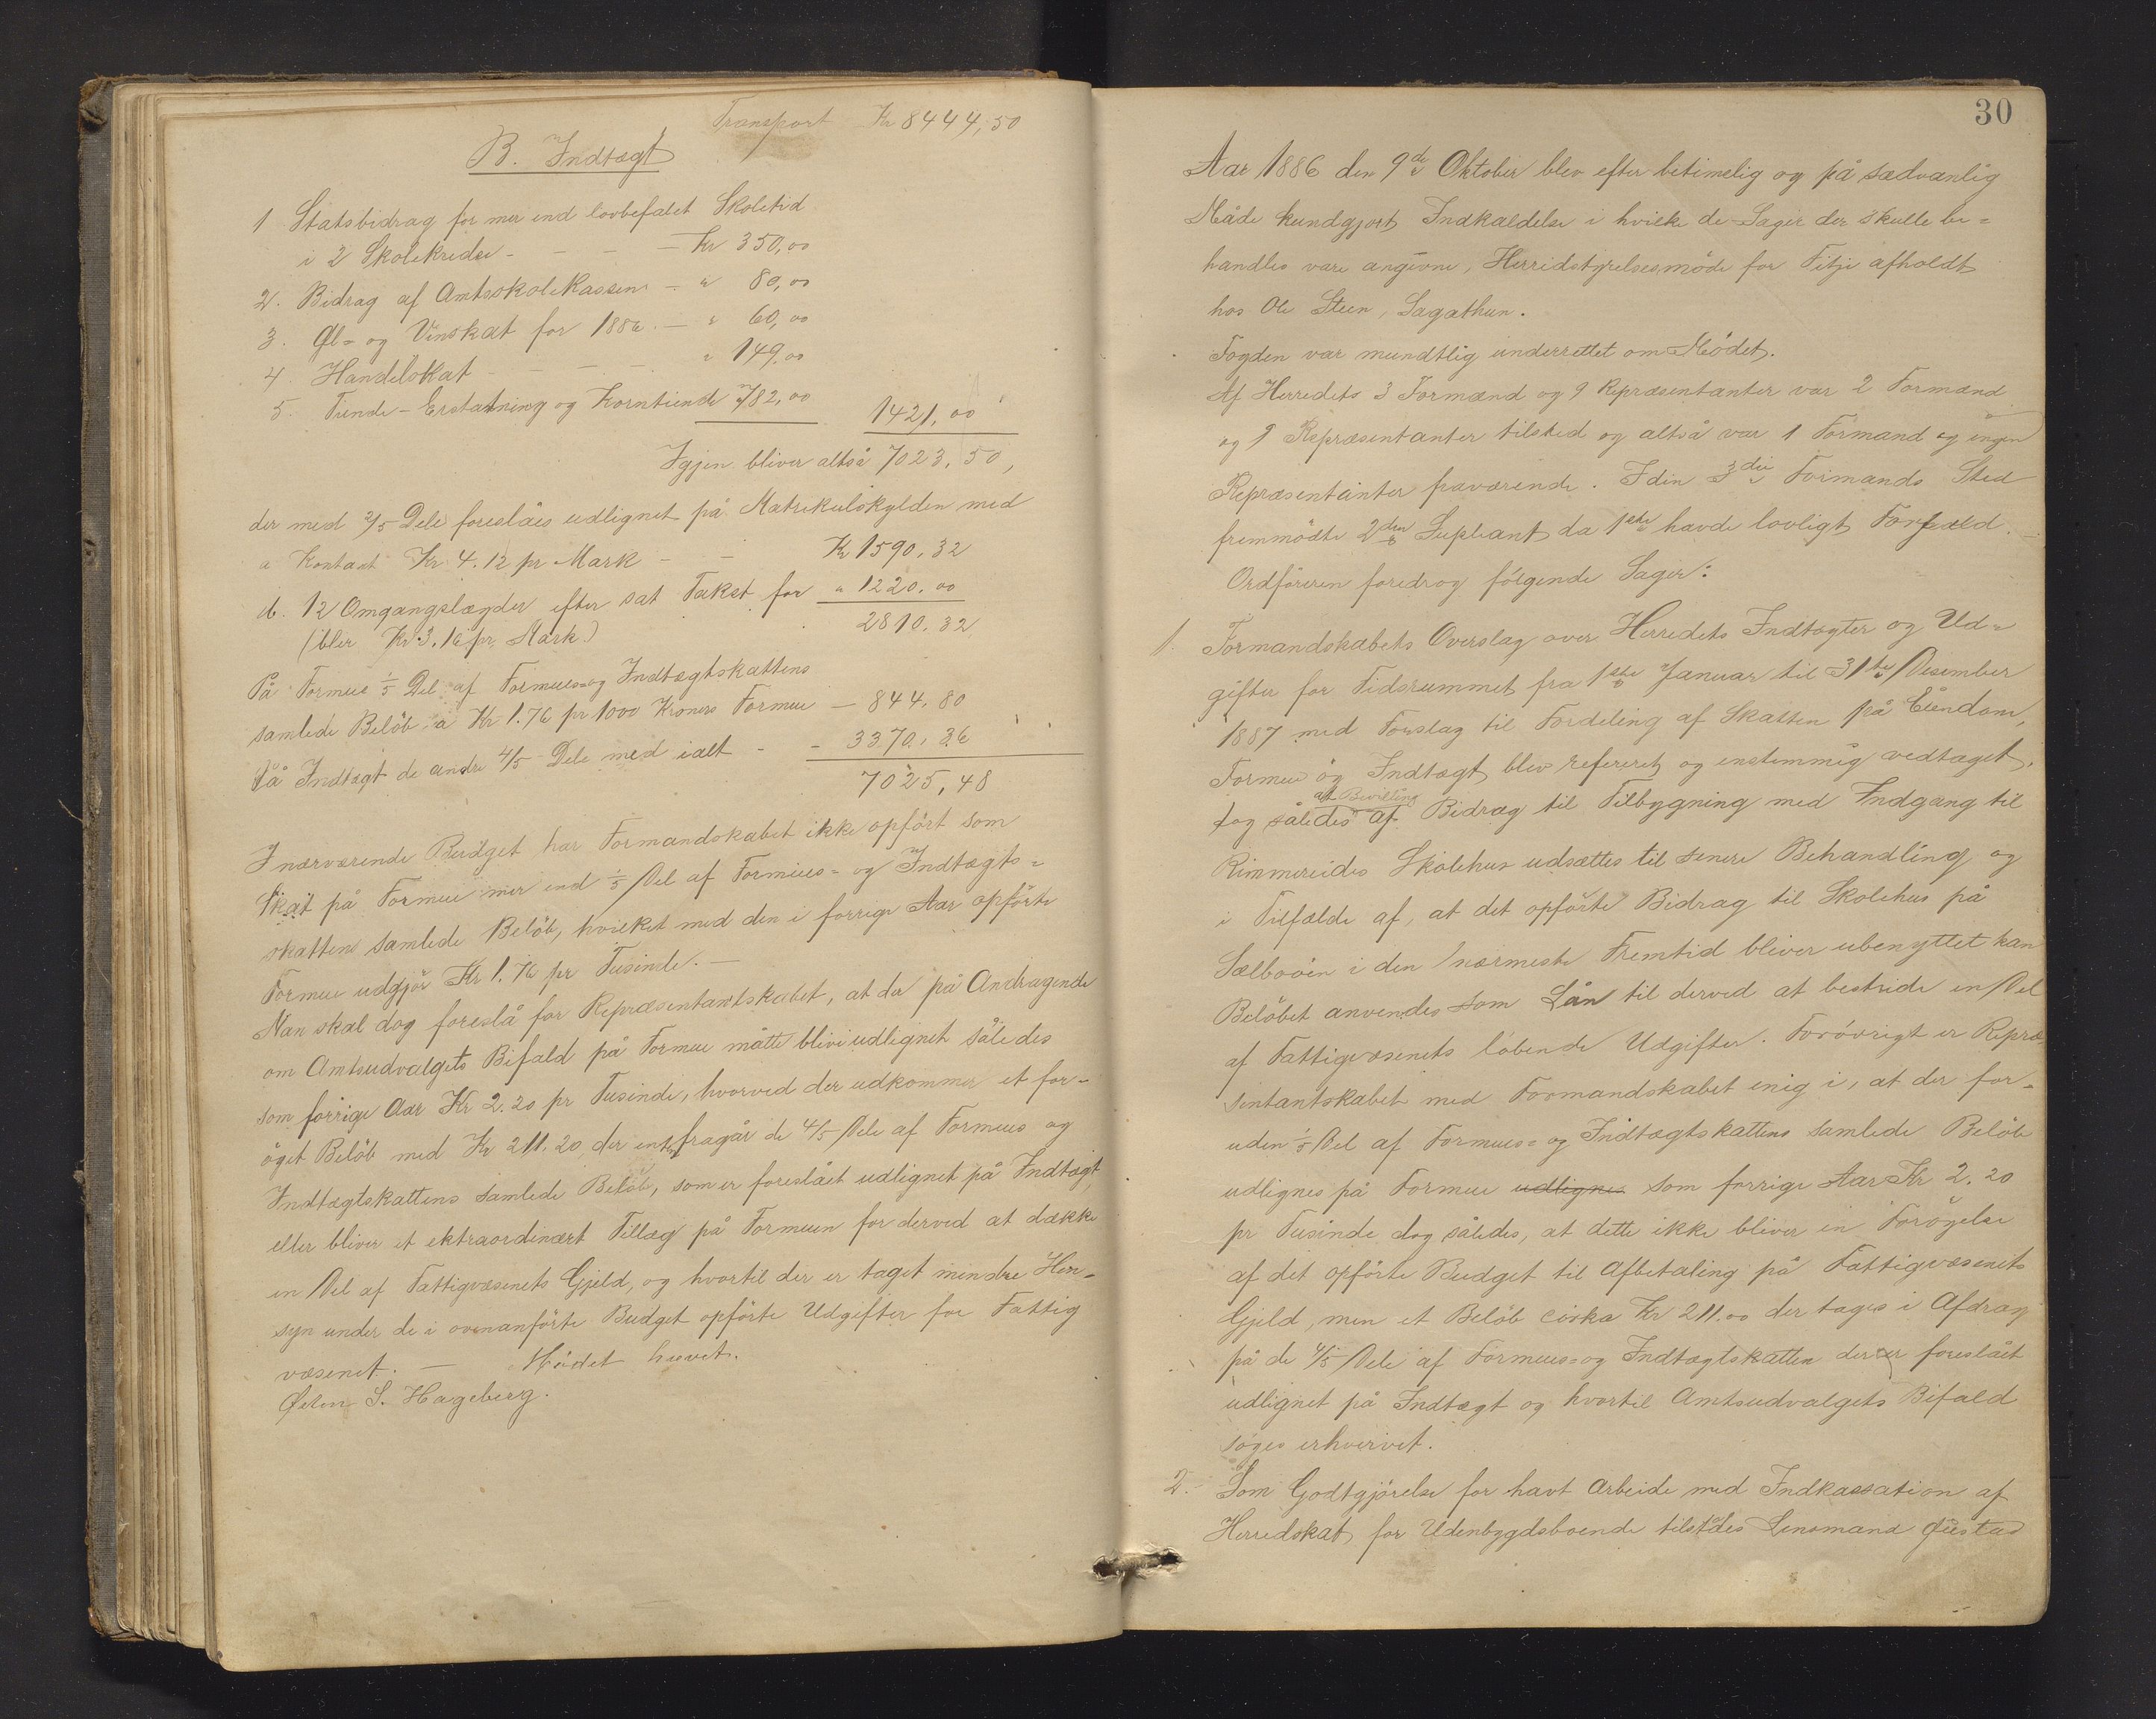 Transport Kr 8444,50
B. Indtægt
1 Statsbidrag for mer end lovbefalet Skoletid
i 2 Skolekredse - - - - Kr 350,00
2. Bidrag af Amtsskolekassen - " 80,00
3. Øl- og Vinskat for 1886. - " 60,00
4. Handelskat - - - - " 149,00
5. Tiende-Erstatning og Korntiende 782,00 1421,00
Igjen bliver altså 7023,50,
der med 2/5 Dele foreslåes udlignet på Matrikulskylden med
a Kontant Kr. 4.12 pr Mark - - Kr 1590,32
b. 12 Omgangslægder efter sat Takst for " 1220.00
(bler Kr 3.16 pr. Mark) 2810,32
På Formue 1/5 Del af Formues- og Indtægtskattens
samlede Beløb a Kr 1.76 pr 1000 Kroners Formue - 844,80
På Indtægt de andre 4/5 Dele med ialt - - 3370,36
7025,48
I nærværende Budget har Formandskabet ikke opført som
Skat på Formue mer end 1/5 Del af Formues- og Indtægts-
skattens samlede Beløb, hvilket med den i forrige Aar opførte
Formue udgjør Kr 1.76 pr Tusinde. -
Man skal dog foreslå for Repræsentantskabet, at der på Andragende
om Amtsudvalgets Bifald på Formue måtte blive udlignet således
som forrige Aar Kr 2.20 pr Tusinde, hvorved der udkommer et for-
øget Beløb med Kr 211.20, der enten fragår de 4/5 Dele af Formues og
Indtægtskattens samlede Beløb, som er foreslået udlignet på Indtægt,
eller bliver et ektraordinært Tillæg på Formuen for derved at dække
en Del af Fattigvæsenets Gjeld, og hvortil der er taget mindre Hen-
syn under de i ovenanførte Budget opførte Udgifter for Fattig
væsenet. - Mödet hævet.
S. Hageberg.
30
Aar 1886 den 9de Oktober blev efter betimelig og på sædvanlig
Måde kundgjort Indkaldelse i hvilke de Sager der skulle be-
handles vare angivne, Herredstyrelsesmöde for Fitje afholdt
hos Ole Steen, Sagathun.
Fogden var mundtlig underrettet om Mödet.
Af Herredets 3 Formænd og 9 Repræsentanter var 2 Formænd
og 9 Repræsentanter tilsted og altså var 1 Formand og ingen
Repræsentanter fraværende. I den 3die Formands Sted
fremmödte 2den Supleant da 1ste havde lovligt Forfald. -
Ordföreren foredrog fölgende Sager:
1. Formandskabets Overslag over Herredets Indtægter og Ud-
gifter for Tidsrummet fra 1ste Januar til 31te Desember
1887 med Forslag til Fordeling af Skatten på Eiendom,
Formue og Indtægt blev refereret og enstemmig vedtaget,
at Bevilling
dog således af Bidrag til Tilbygning med Indgang til
Rimmereides Skolehus udsættes til senere Behandling og
i Tilfælde af, at det opförte Bidrag til Skolehus på
Sælbvöen i den nærmeste Fremtid bliver ubenyttet kan
Belöbet anvendes som Lån til derved at bestride en Del
af Fattigvæsenets löbende Udgifter. Forövrigt er Repræ
sentantskabet med Formandskabet enig i, at der for-
uden 1/5 Del af Formues- og Indtægtskattens samlede Belöb
udlignes på Formue udlignes som forrige Aar Kr 2.20
pr Tusinde dog således, at dette ikke bliver en Forögelse
af det opförte Budget til Afbetaling på Fattigvæsenets
Gjeld, men et Belöb cirka Kr 211.00 der tages i Afdrag
på de 4/5 Dele af Formues- og Indtægtskatten der er foreslået
udlignet på Indtægt og hvortil Amtsudvalgets Bifald
söges erhvervet.
2. Som Godtgjörelse for havt Arbeide med Indkassation af
Herredskat for Udenbygdsboende tilstedes Lensmand Øiestad